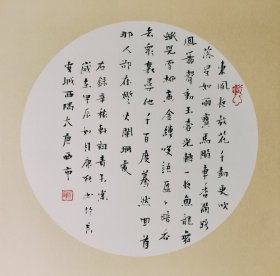 東風夜放花千樹更吹
落星如雨寶馬雕車香滿路
鳳簫聲動玉壺光轉一夜魚龍舞
蛾兒雪柳黃金縷笑語盈盈暗香
去眾裏尋他千百度驀然回首
那人卻在燈火闌珊處
右錄辛稼軒詞青玉案
歲在甲辰如月康 書於長
安城西隅大唐西市